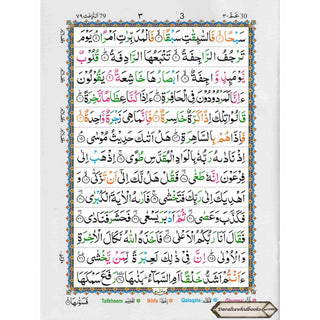 عَمَّ ٣٠ 30 3 ٣ النّٰزِعٰت ٧٩ 79
سَبْحًا ۙ فَالسّٰبِقٰتِ سَبْقًا ۙ فَالْمُدَبِّرٰتِ اَمْرًا ۘ يَوْمَ
تَرْجُفُ الرَّاجِفَةُ ۙ تَتْبَعُهَا الرَّادِفَةُ ؕ قُلُوْبٌ
يَّوْمَىِٕذٍ وَّاجِفَةٌ ۙ اَبْصَارُهَا خَاشِعَةٌ ۘ يَقُوْلُوْنَ
ءَاِنَّا لَمَرْدُوْدُوْنَ فِى الْحَافِرَةِ ؕ ءَاِذَا كُنَّا عِظَامًا نَّخِرَةً ؕ
قَالُوْا تِلْكَ اِذًا كَرَّةٌ خَاسِرَةٌ ۘ فَاِنَّمَا هِىَ زَجْرَةٌ وَّاحِدَةٌ ۙ
فَاِذَا هُمْ بِالسَّاهِرَةِ ؕ هَلْ اَتٰىكَ حَدِيْثُ مُوْسٰى ۘ
اِذْ نَادٰىهُ رَبُّهٗ بِالْوَادِ الْمُقَدَّسِ طُوًى ۚ اِذْهَبْ اِلٰى
فِرْعَوْنَ اِنَّهٗ طَغٰى ۖ فَقُلْ هَلْ لَّكَ اِلٰٓى اَنْ تَزَكّٰى ۙ وَ
اَهْدِيَكَ اِلٰى رَبِّكَ فَتَخْشٰى ۚ فَاَرٰىهُ الْاٰيَةَ الْكُبْرٰى ۖ
فَكَذَّبَ وَعَصٰى ۖ ثُمَّ اَدْبَرَ يَسْعٰى ۖ فَحَشَرَ فَنَادٰى ۖ
فَقَالَ اَنَا رَبُّكُمُ الْاَعْلٰى ۖ فَاَخَذَهُ اللّٰهُ نَكَالَ الْاٰخِرَةِ
وَالْاُوْلٰى ؕ اِنَّ فِىْ ذٰلِكَ لَعِبْرَةً لِّمَنْ يَّخْشٰى ؕ
ءَاَنْتُمْ اَشَدُّ خَلْقًا اَمِ السَّمَآءُ ؕ بَنٰىهَا ۥ رَفَعَ سَمْكَهَا
فَسَوّٰىهَا ۙ
Tafkheem Ikhfa Qalaqala
Darulsawhidbooks.com